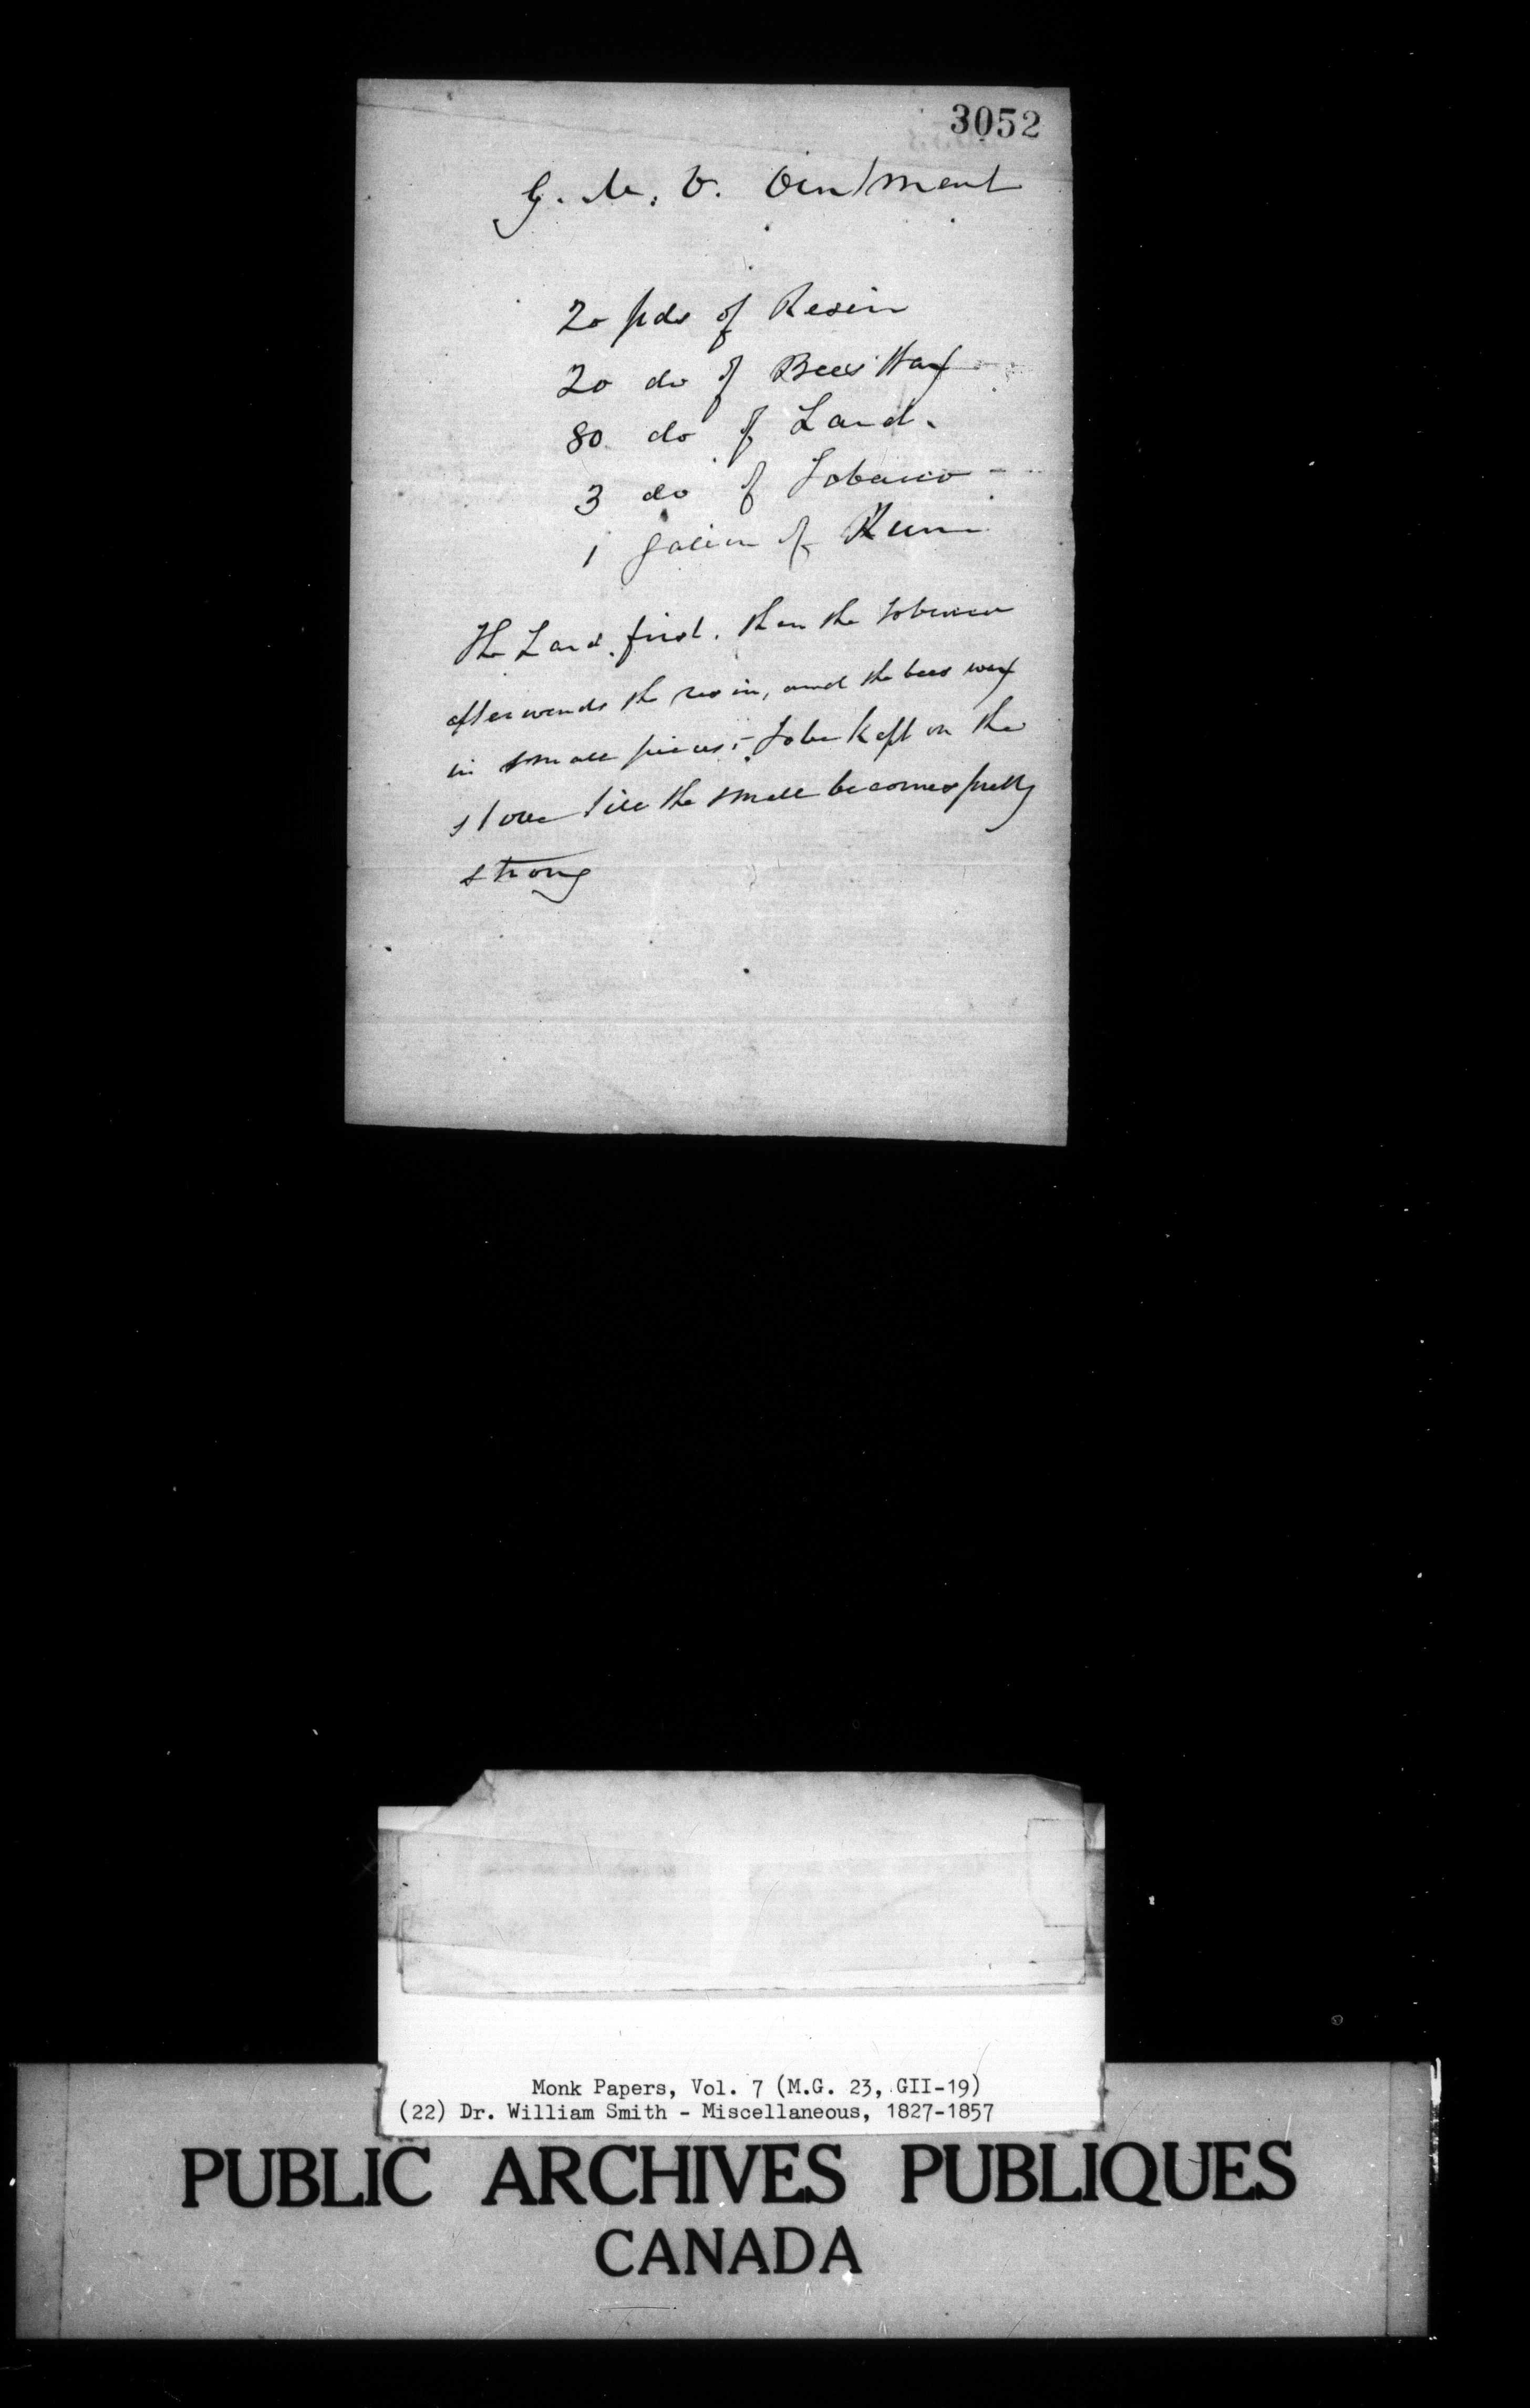 3052
G. M. O. Ointment
20 pds of Resin
20 do of Bees Wax
80 do of Lard.
3 do of Tobacco -
1 gallon of Rum
The Lard first. then the tobacco
afterwards the resin, and the bees wax
in small pieces; - to be kept on the
stove till the smell becomes pretty
strong
Monk Papers, Vol. 7 (M.G. 23, GII-19)
(22) Dr. William Smith - Miscellaneous, 1827-1857
PUBLIC ARCHIVES PUBLIQUES
CANADA